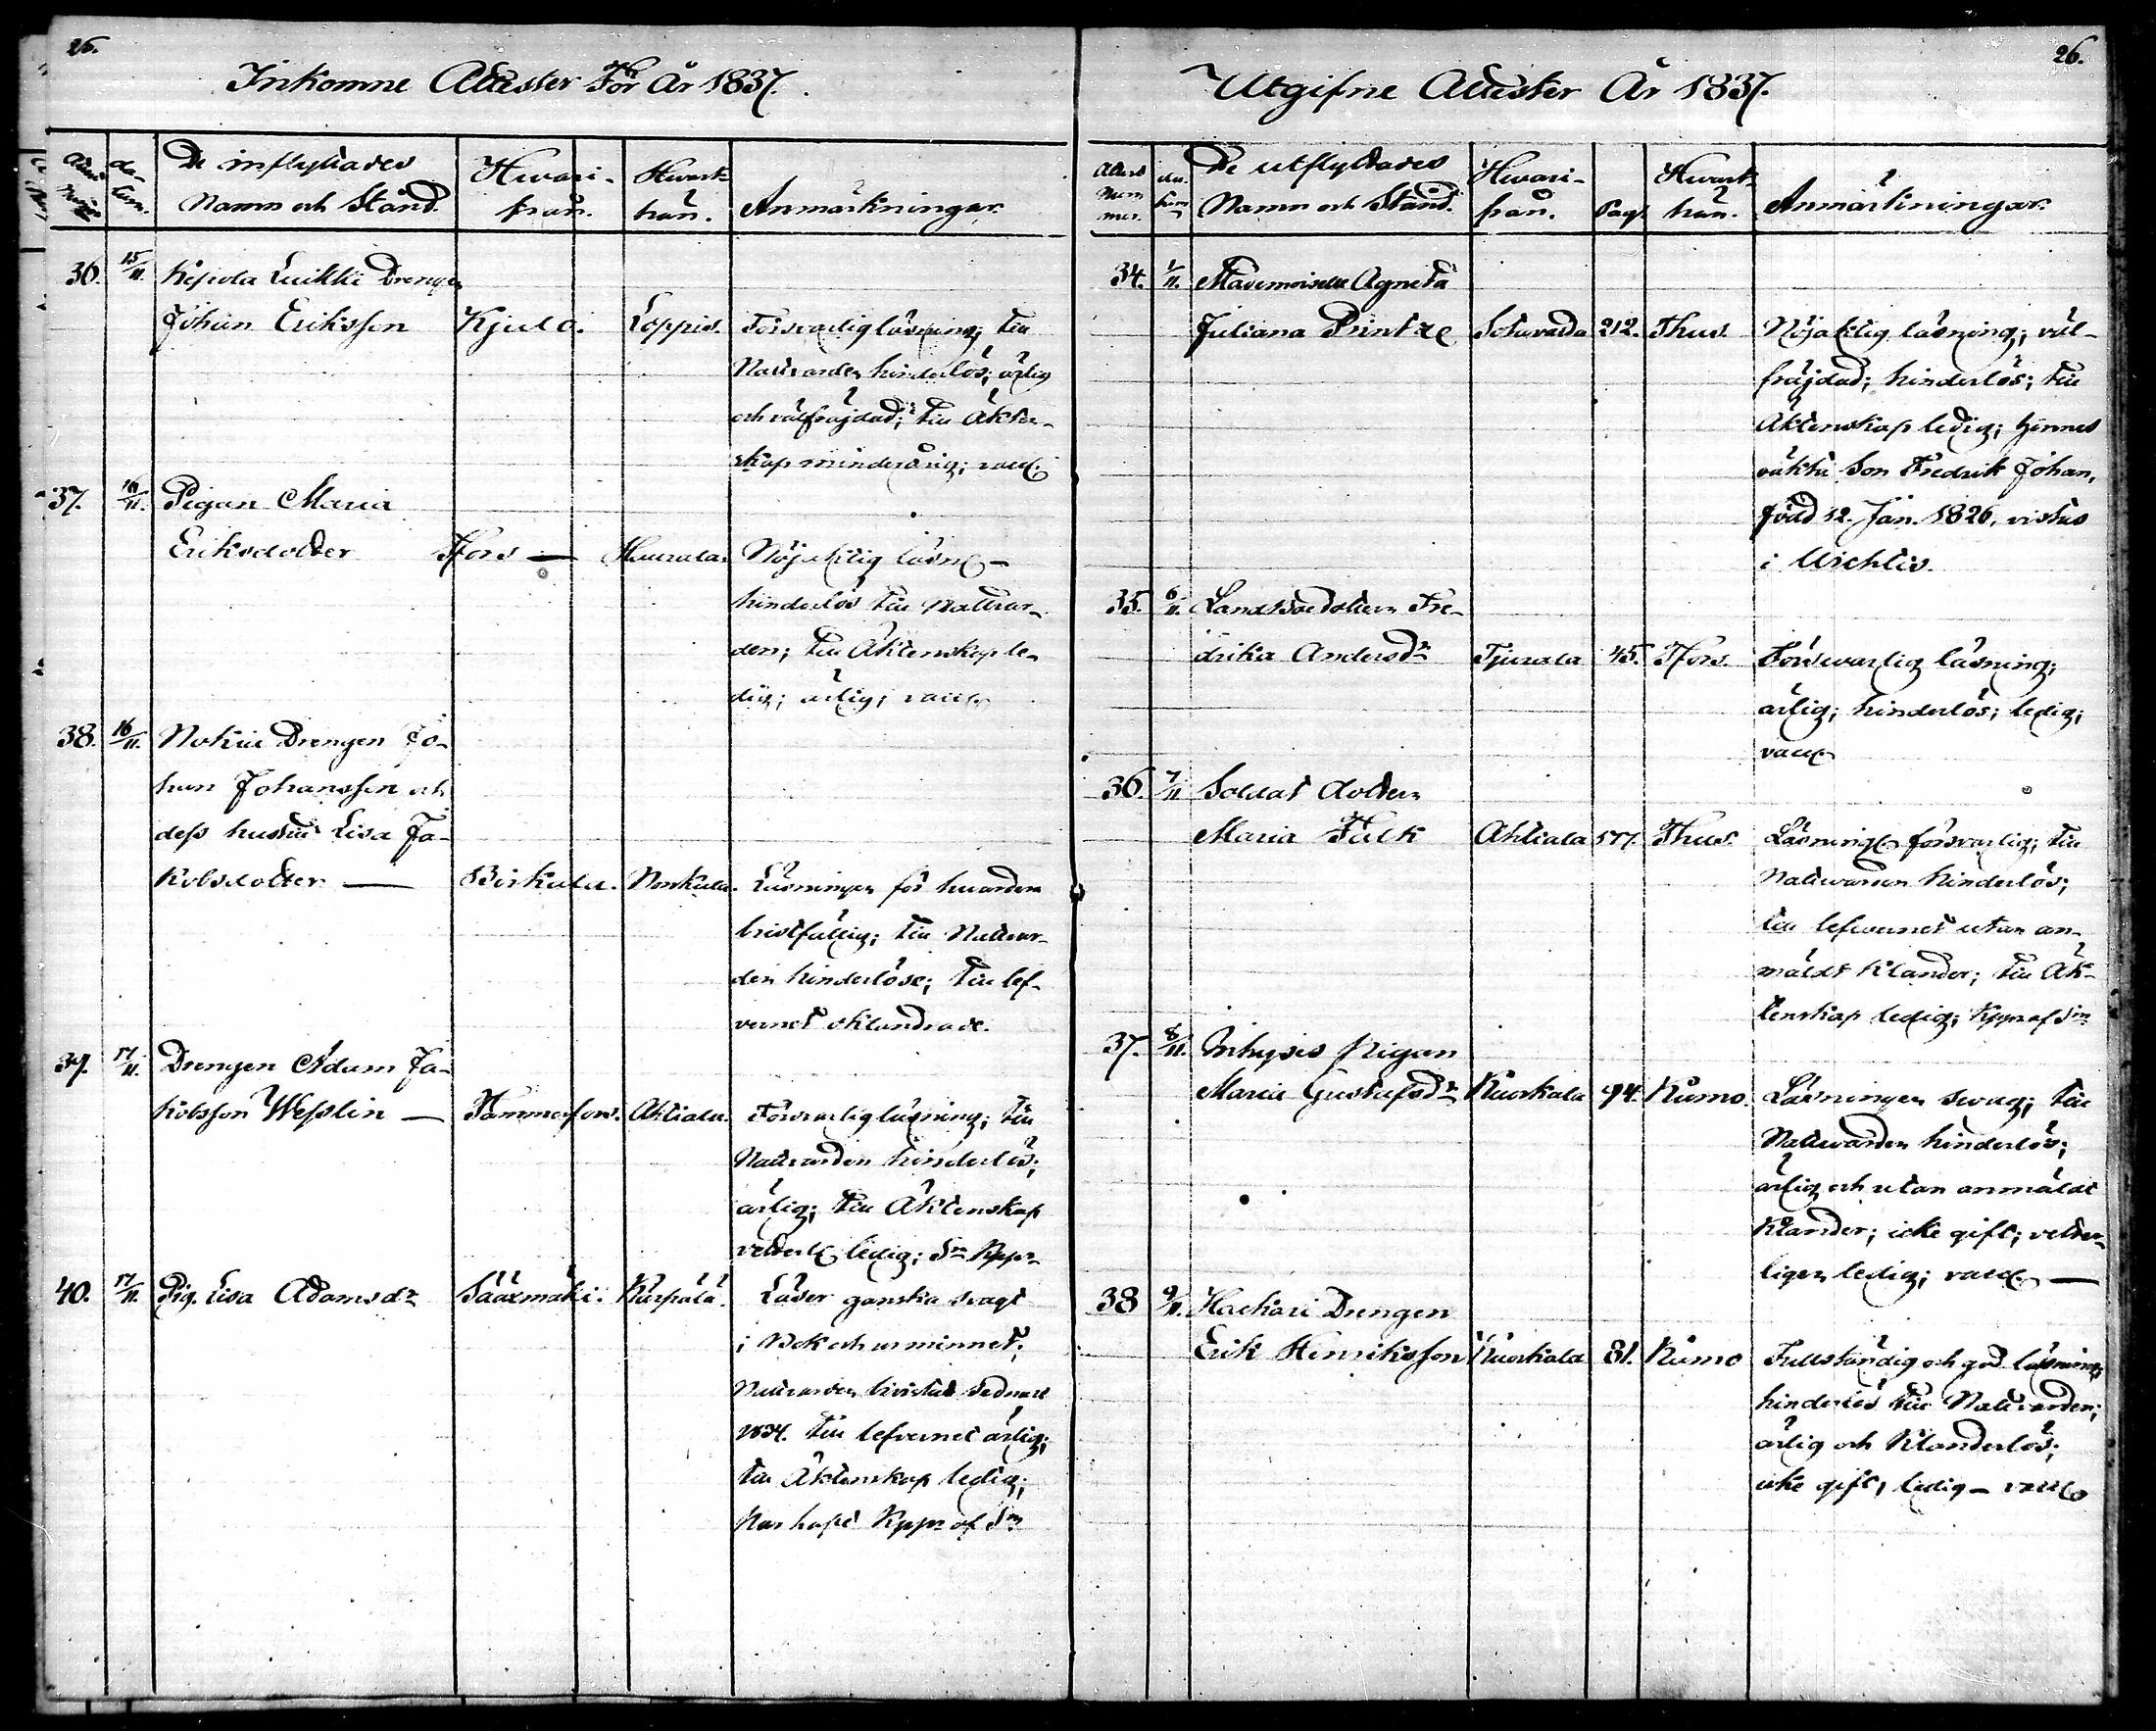 26.
Inkomne Attester För År 1837.
De inflyttades
Namn och Stånd.
Hvari-
från.
Hvart-
hän.
Anmärkningar.
36. 15/11. Drengen
Johan Eriksson Kjulo. Loppis. Försvarlig läsning; till
Nattvarden hinderlös; ärlig
och välfräjdad; till Äkten-
skap minderårig; vacc.
37. 16/11. Pigan Maria
Eriksdotter Tfors — Nöjaktig läsn.
hinderlös till Nattvar-
den; till Äktenskap le-
dig; ärlig; vacc.
38. 16/11. Nokia Drengen Jo-
han Johansson och
dess hustru Lisa Ja-
kobsdotter — Birkala. Läsningen för hvardera
bristfällig; till Nattvar-
den hinderlöse; till lef-
vernet oklandrade.
39. 17/11. Drengen Adam Ja-
kobsson Wesslin — Tammerfors. Ahtiala. Försvarlig läsning; till
Nattvarden hinderlös;
ärlig; till Äktenskap
ledig;
40. 17/11. Pig. Lisa Adamsdr Sääxmäki. Kärpälä. Läser ganska svagt
i Bok och ur minnet;
Nattvarden bevistat sednast
1834. till lefvernet ärlig;
till Äktenskap ledig;
Har haft Kppr af Sm
26.
Utgifne Attester År 1837.
Attest
Num
mer.
da-
tum
De utflyttades
Namn och Stånd.
Hvari-
från.
Pag.
Hvart-
hän.
Anmärkningar.
34. 1/11. Mademoiselle Agneta
Juliana Printze 212. Thus. Nöjaktig läsning; väl-
fräjdad; hinderlös; till
Äktenskap ledig; hennes
oäkta Son Fredrik Johan,
född 12. Jan. 1826, vistas
i Wichtis.
35. 6/11. Fre-
drika Andersdr Tjurala 45. Tfors. Försvarlig läsning;
ärlig; hinderlös; ledig;
vacc.
36. 7/11 Soldat dottren
Maria Falk Ahtiala 577. Thus. Läsning försvarlig; till
Nattvarden hinderlös;
till lefvernet utan an-
mäldt klander; till Äk-
tenskap ledig; Kppr af Sm
37. 8/11. Inhyses Pigan
Maria Gustafsdr Kuorkala 94. Kumo. Läsningen svag; till
Nattvarden hinderlös;
ärlig och utan anmäldt
klander; icke gift; vetter-
ligen ledig; vacc. —
38 9/11. Hackari Drengen
Erik Henriksson Kuorkala 81. Kumo Fullständig och god läsning;
hinderlös till Nattvarden;
ärlig och klanderlös;
icke gift, ledig – vacc.